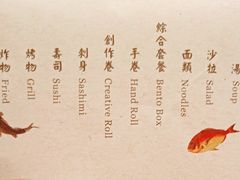 湯 Soup
沙拉 Salad
麵類 Noodles
綜合套餐 Bento Box
手卷 Hand Roll
創作卷 Creative Roll
刺身 Sashimi
壽司 Sushi
烤物 Grill
炸物 Fried